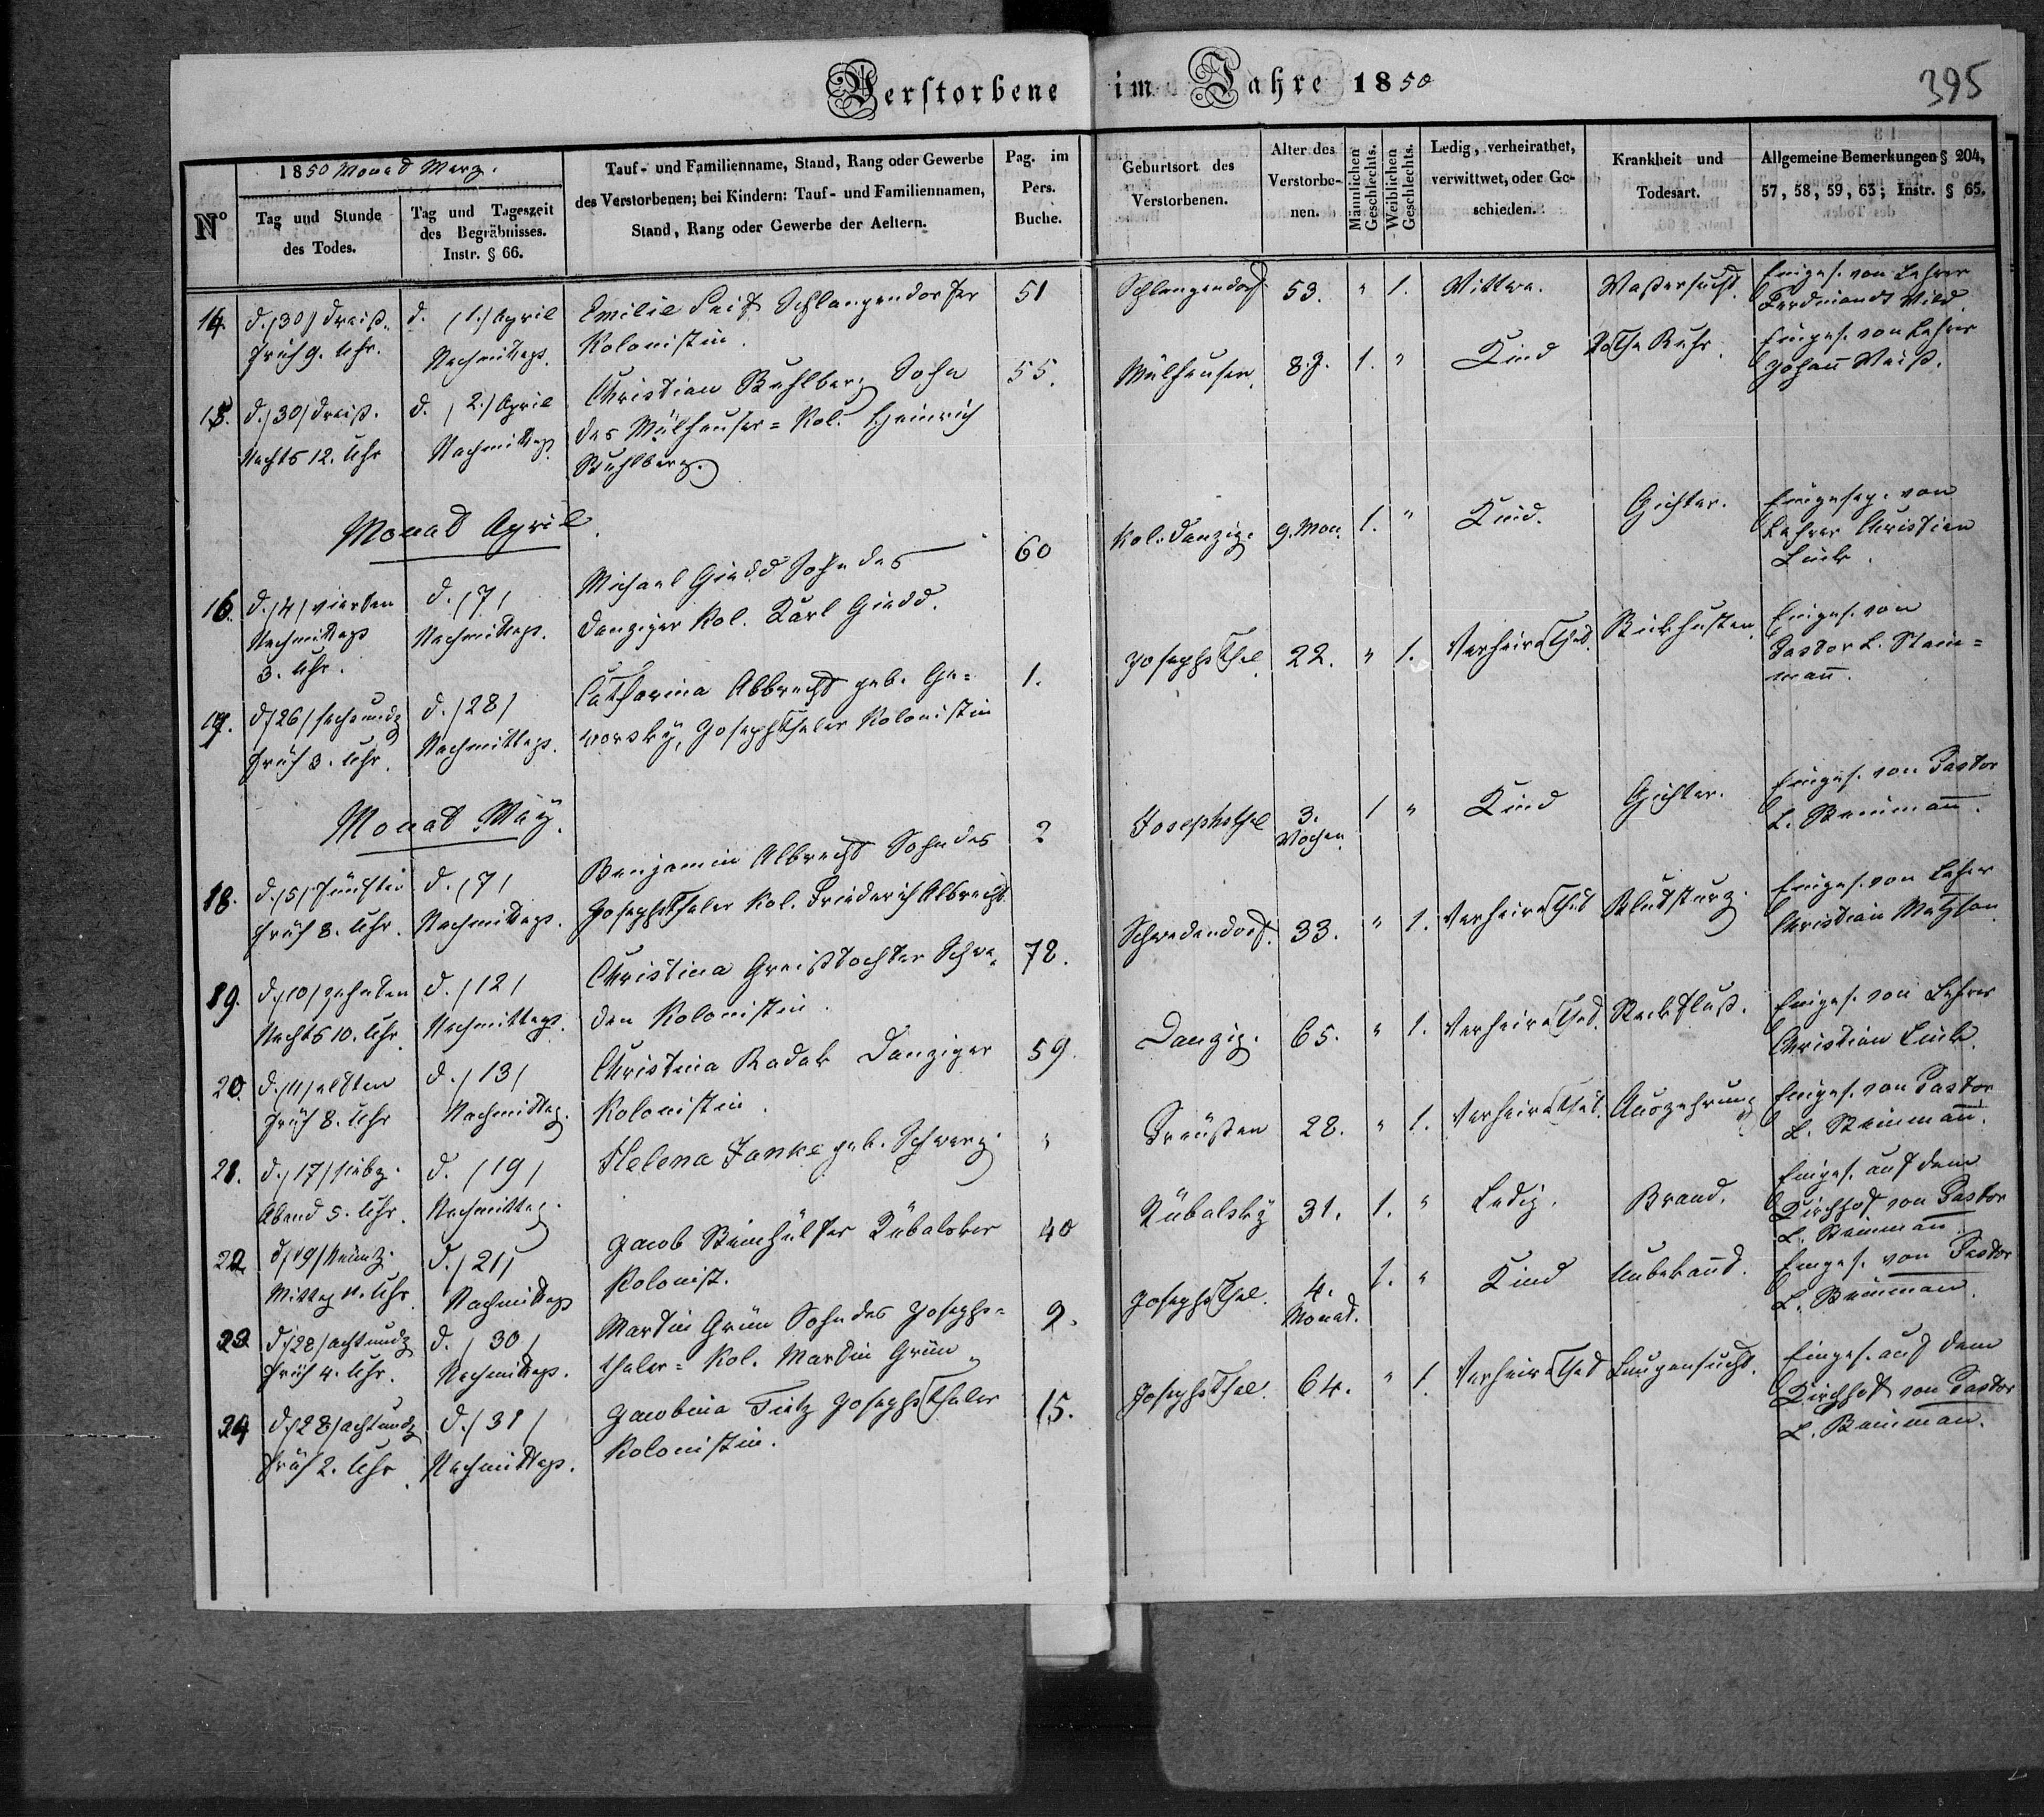 Verstorbene im Jahre 1850
395
1850 Monad Merz.
N°
Tag und Stunde
des Todes.
Tag und Tageszeit
des Begräbnisses.
Instr. § 66.
Tauf- und Familienname, Stand, Rang oder Gewerbe
des Verstorbenen; bei Kindern: Tauf- und Familiennamen,
Stand, Rang oder Gewerbe der Aeltern.
Pag. im
Pers.
Buche.
Geburtsort des
Verstorbenen.
Alter des
Verstorbe-
nen.
Männlichen
Geschlechts.
Weiblichen
Geschlechts.
Ledig, verheirathet,
verwittwet, oder Ge-
schieden.
Krankheit und
Todesart.
Allgemeine Bemerkungen § 204,
57, 58, 59, 63; Instr. § 65.
14.
d. /30/ dreiß.
früh 9. Uhr.
d. /1./ April
Nachmittags.
Emilie Schlangendorfer
Kolonistin.
51
Schlangendorf
53.
" 1.
Wittwe.
Waßersucht.
Einges. von Lehrer
Ferdinandt
15.
d. /30/ dreiß.
Nachts 12. Uhr
d. /2./ April
Nachmittags
Christian Buhlberg Sohn
des Mülhauser= Kol. Heinrich
Buhlberg.
55.
Mülhausen.
8 J.
1. "
Kind
Rothe Ruhr.
Einges. von Lehrer
Johann Weiß.
Monad April.
16.
d. /4/ vierten
Nachmittags
3. Uhr.
d. /7/
Nachmittags.
Michael Giedd Sohn des
Danziger Kol. Karl Giedd.
60
Kol. Danzig.
9. Mon.
1. "
Kind.
Gichter.
Eingeseg. von
Lehrer Christian
17.
d /26/ sechsundz
früh 3. Uhr.
d. /28/
Nachmittags.
Catharina Albrecht geb. Ge=
worsky, Josephsthaler Kolonistin
1.
Josephsthal.
22.
" 1.
Verheirathet.
Stickhusten
Einges. von
Pastor L. Stein=
mann.
Monad May.
18.
d. /5/ fünften
früh 8. Uhr.
d. /7/
Nachmittags.
Benjamin Albrecht Sohn des
Josephsthaler Kol. Friederich Albrecht.
2
Josephsthal
3.
Wochen.
1 "
Kind
Gichter.
Einges. von Pastor
L. Steinmann.
19.
d. /10/ zehnten
Nachts 10. Uhr.
d. /12/
Nachmittags.
Christina Schwe=
den Kolonistin.
78.
Schwedendorf.
33.
" 1.
Verheirathet
Blutsturz.
Einges. von Lehrer
Christian
20.
d. /11/ elften
früh 8. Uhr
d. /13/
Nachmittag.
Christina Radak Danziger
Kolonistin.
59.
Danzig.
65.
" 1.
Verheirathet.
Steckfluß.
Einges. von Lehrer
Christian
21.
d. /17/ siebz.
Abend 5. Uhr.
d. /19/
Nachmittag.
Helena Janke geb. Schwarz.
"
Preußen
28.
" 1.
Verheirathet.
Auszehrung
Einges. von Pastor
L. Steinmann.
22.
d /19/ neunz.
Mittag 11. Uhr
d. /21/
Nachmittags
Jacob Rübalsker
Kolonist.
40
Rübalsky
31.
1. "
Ledig.
Brand.
Einges. auf dem
Kirchhof von Pastor
L. Steinmann.
23.
d /28/ achtundz
früh 4. Uhr.
d. /30/
Nachmittags.
Martin Grün Sohn des Josephs=
thaler= Kol. Martin Grün
9.
Josephsthal.
4.
Monad.
1. "
Kind
Unbekannd.
Einges. von Pastor
L. Steinman.
24
d /28/ achtundz
früh 2. Uhr.
d. /31/
Nachmittags.
Jacobina Tietz Josephsthaler
Kolonistin.
15.
Josephsthal.
64.
" 1.
Verheirathet
Lungensucht.
Einges. auf dem
Kirchhof von Pastor
L. Steinman.